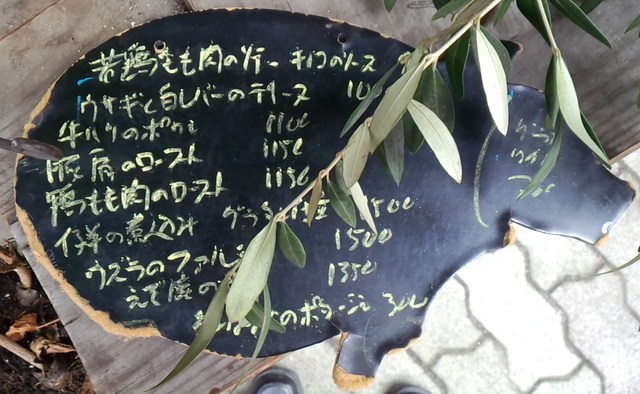 若鶏もも肉のソテー キノコのソース
ウサギと白レバーのテリーヌ 10
牛ハツのポワレ 1100
豚肩のロースト 1150
鶏もも肉のロースト 1150
仔羊の煮込み 1500
ウズラのファルシ 1500
えぞ鹿の 1350
のポタージュ 300
グラス
ワイン